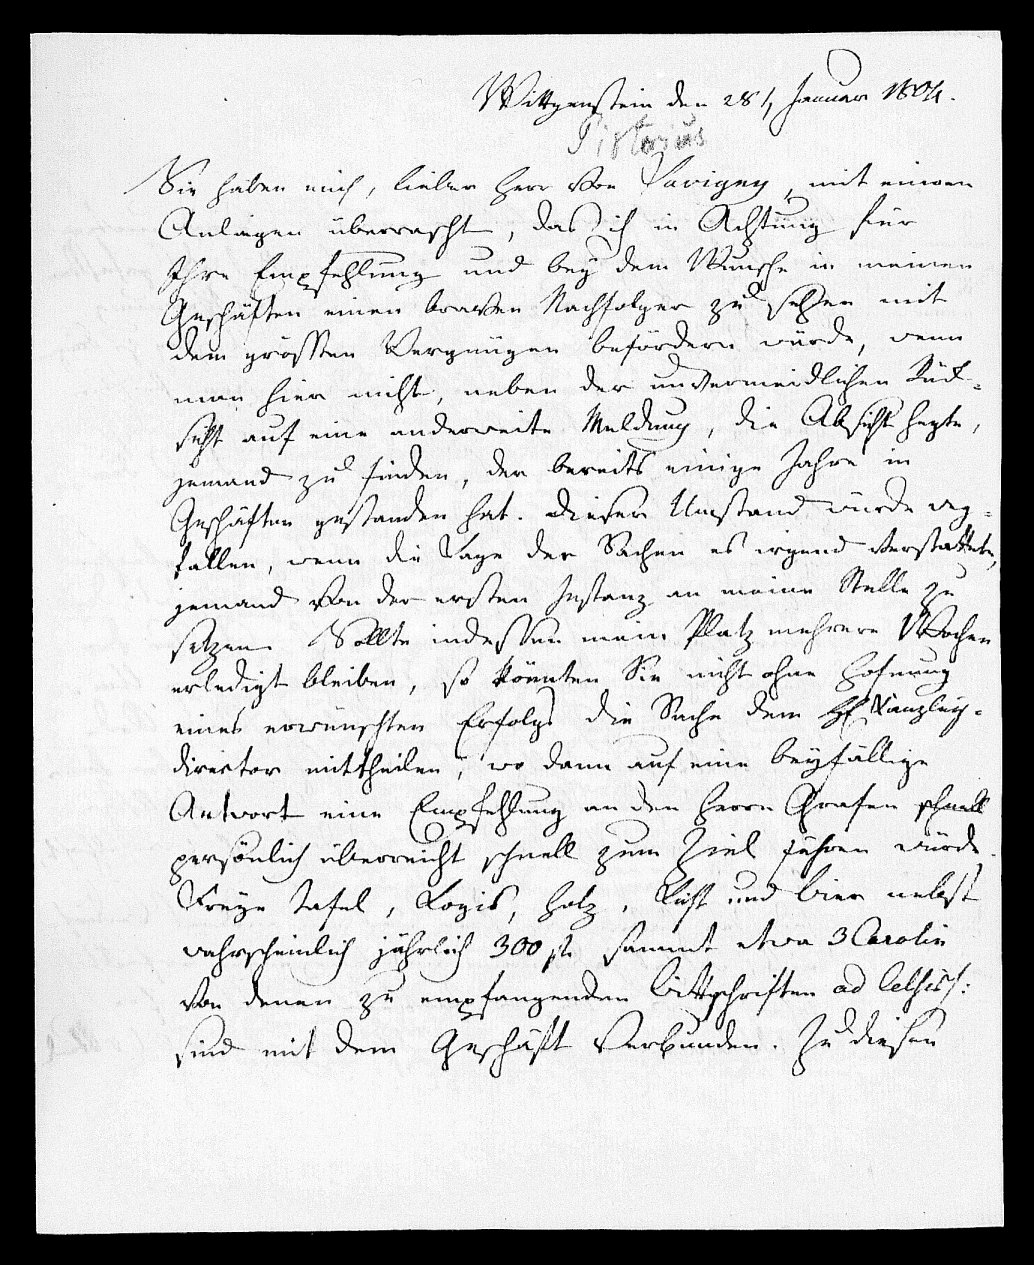 Wittgenstein den 28t Januar 1804.
Pistorius
Sie haben mich, lieber Herr von Savigny, mit einem
Anliegen überrascht, das ich in Achtung für
Ihre Empfehlung und bey dem Wunsche in meinen
Geschäften einen braven Nachfolger zu sehen mit
dem grösten Vergnügen befördern würde, wenn
man hier nicht, neben der unvermeidlichen Rük-
sicht auf eine anderweite Meldung, die Absicht hegte,
jemand zu finden, der bereits einige Jahre in
Geschäften gestanden hat. Dieser Umstand würde weg-
fallen, wenn die Lage der Sachen es irgend verstattete,
jemand von der ersten Instanz an meine Stelle zu
setzen. Sollte indessen mein Platz mehrere Wochen
erledigt bleiben, so könnten Sie nicht ohne Hofnung
eines erwünschten Erfolgs die Sache dem H. Kanzley-
director mittheilen, wo dann auf eine beyfällige
Antwort eine Empfehlung an den Herrn Grafen schnell
persönlich überreicht schnell zum Ziel führen würde.
Freye Tafel, Logis, Holz, Licht und Bier nebst
wahrscheinlich jährlich 300 fl. sammt etwa 3 Carolin
von denen zu empfangenden Bittschriften ad Celsiss:
sind mit dem Geschäft verbunden. Zu diesen